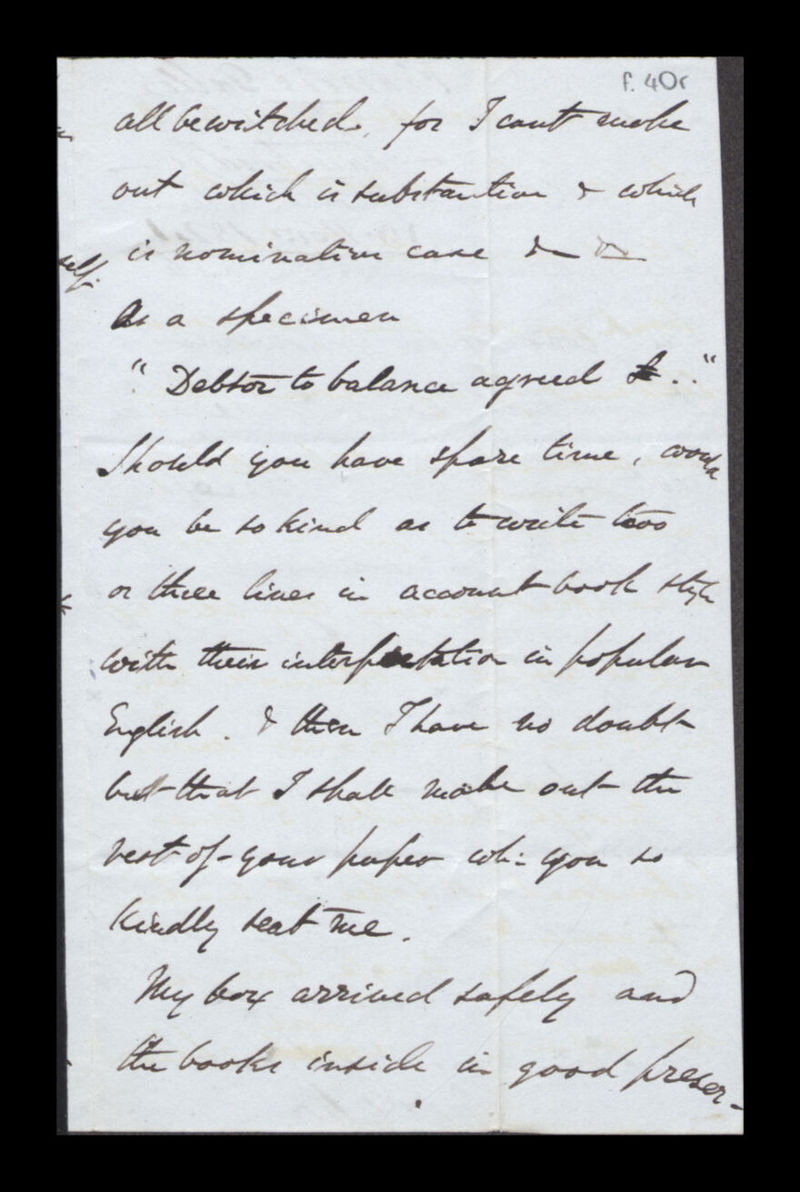 f. 40r
all bewitched, for I can't make
out which is substantive & which
is nominative case & &
As a specimen
"Debtor to balance agreed £.."
Should you have spare time, would
you be so kind as to write two
or three lines in account book style
with their interpretation in popular
English. & then I have no doubt
but that I shall make out the
rest of your paper wh: you so
kindly sent me.
My box arrived safely and
the books inside in good preser-
self.